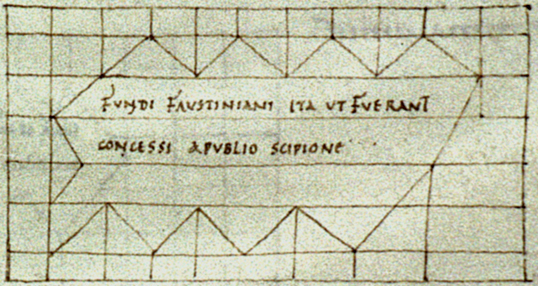 FUNDI FAUSTINIANI ITA UT FUERANT
CONCESSI APVBLIO SCIPIONE